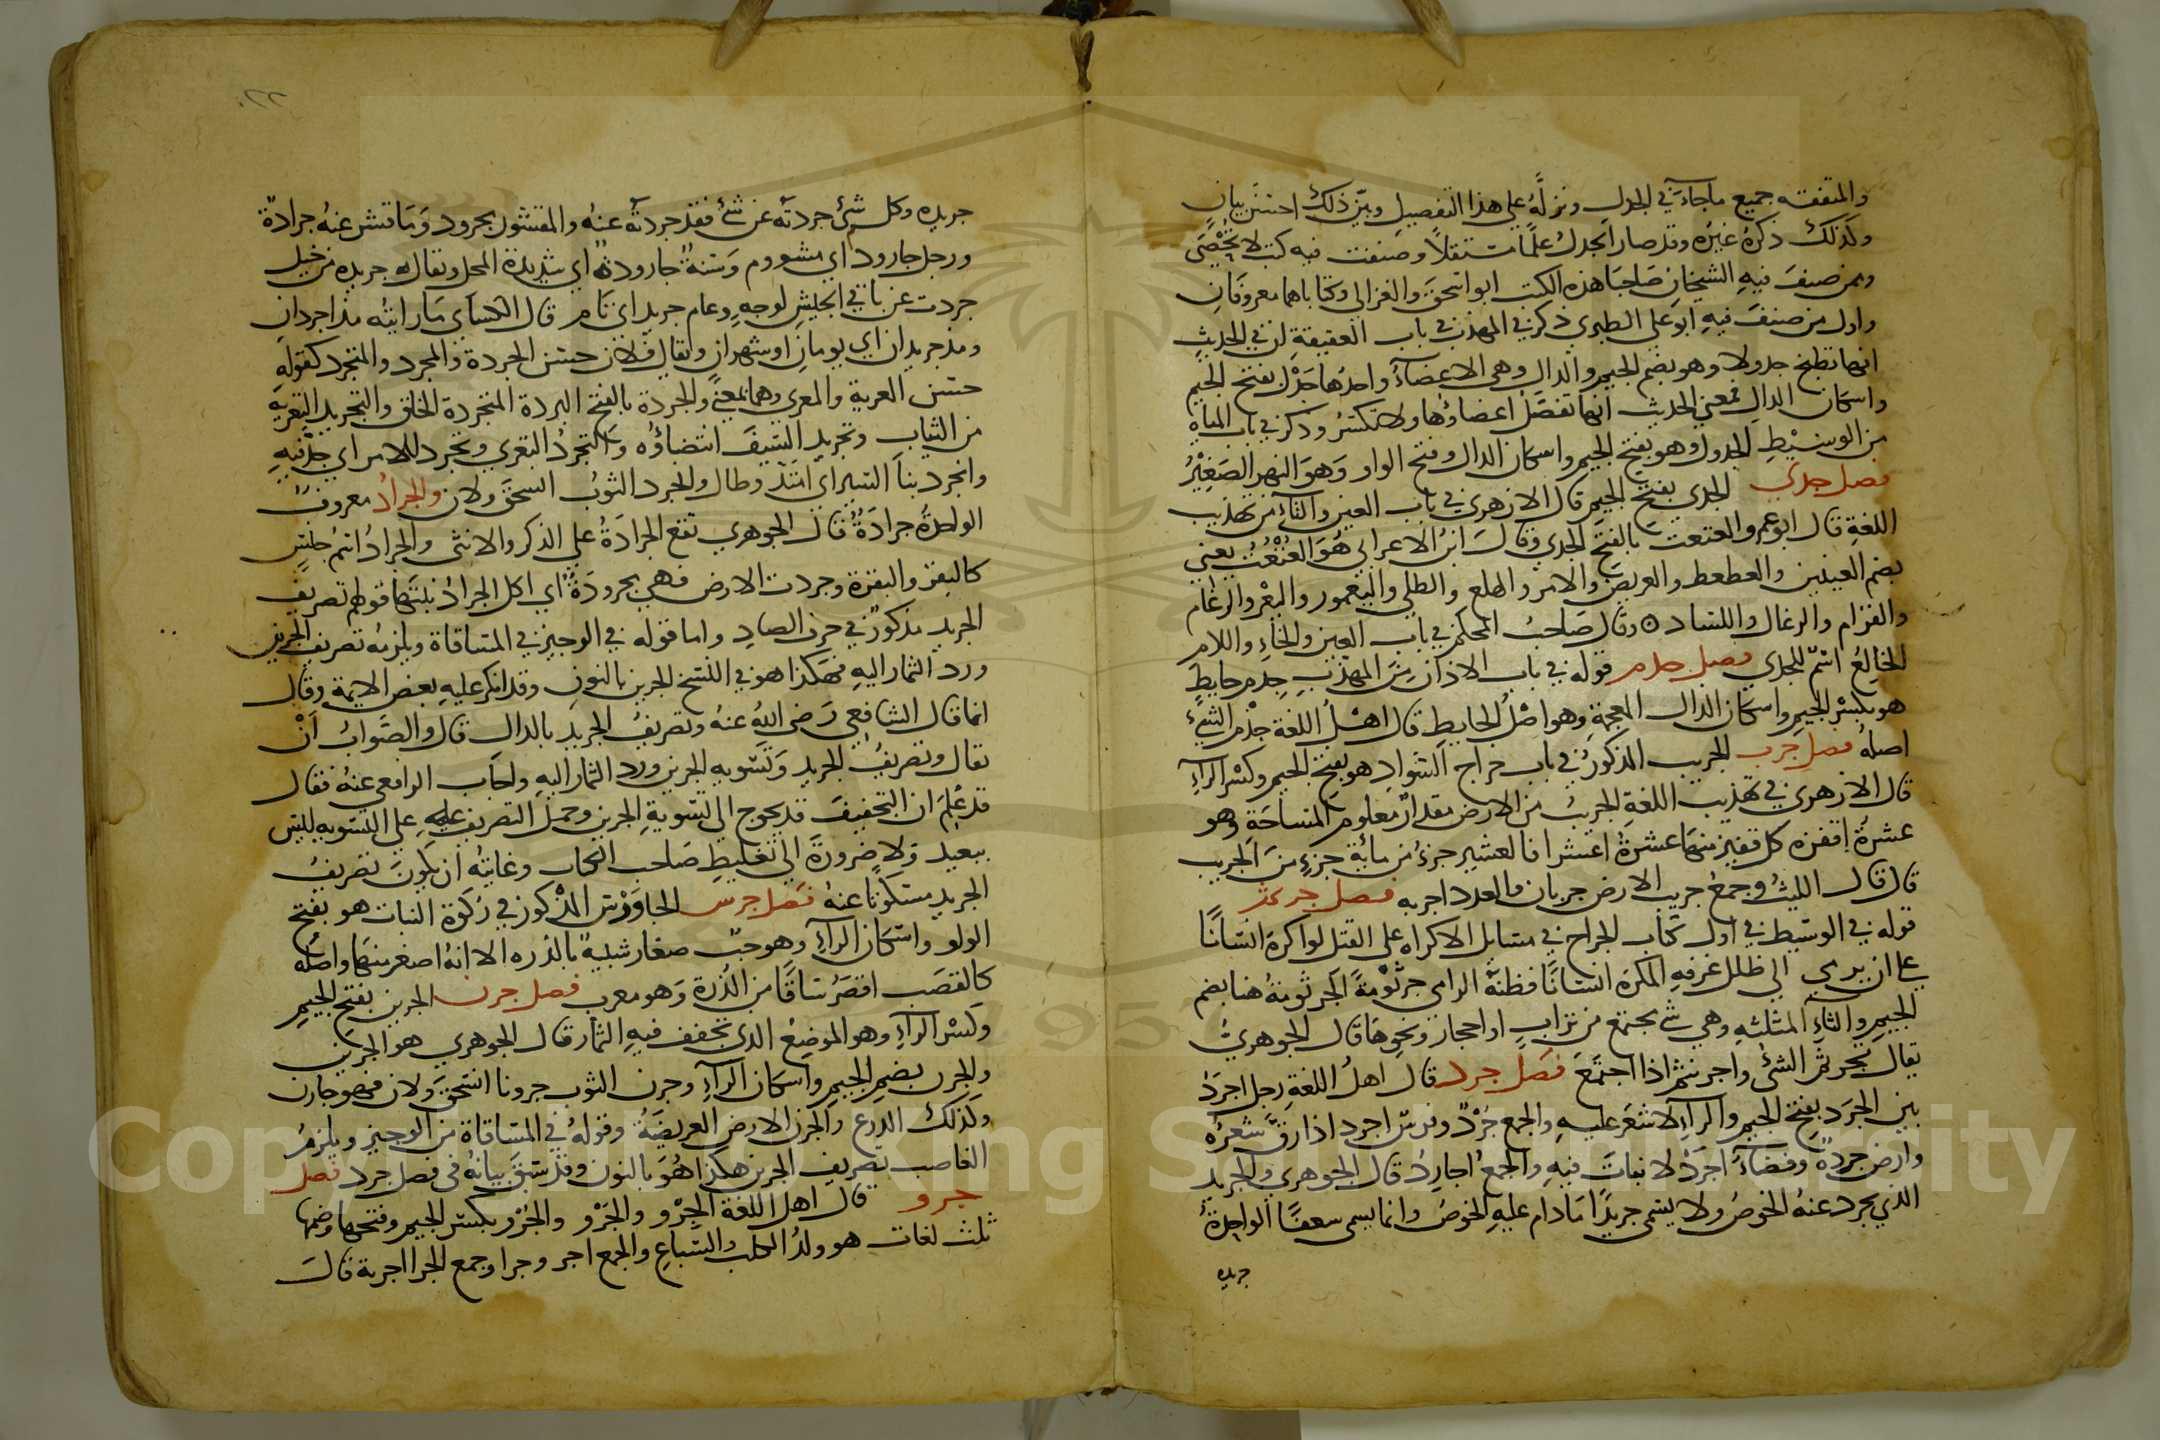 والمتفقه جميع ماجآء في الجدل ونزله على هذا التفصيل وبين ذلك احسن بيان
ولذلك ذكره غيره وقد صار الجدل علما مستقلا وصنفت فيه كتب لا تحصى
وممن صنف فيه الشيخان صاحبا هذه الكتب ابو اسحق والغزالي وكتاباهما معروفان
واول من صنف فيه ابو علي الطبري ذكر في المهذب في باب العقيقة ان في الحديث
انها تطبخ جدولا وهو بضم الجيم والدال وهي الاعضآء واحدها جدل بفتح الجيم
واسكان الدال فمعنى الحديث انها تفصل اعضاؤها ولا تكسر وذكر في باب المياه
من الوسيط الجدول وهو بفتح الجيم واسكان الدال وفتح الواو وهو النهر الصغير
فصل جدي الجدي بفتح الجيم قال الازهري في باب العين والتآء من تهذيب
اللغة قال ابو عمرو العتعت بالفتح الجدي وقال ابن الاعرابي هو العتعت يعني
بضم العينين والعطعط والعريض والامر والهلع والطلي واليعمور والبعر والرغام
والقزام والرغال واللساد ه وقال صاحب المحكم في باب العين والخاء واللام
الخالع اسم للجدي فصل جذم قوله في باب الاذان من المهذب جذم حايط
هو بكسر الجيم واسكان الذال المعجمة وهو اصل الحايط قال اهل اللغة جذم الشيء
اصله فصل جرب الجريب المذكور في باب خراج السواد هو بفتح الجيم وكسر الرآء
قال الازهري في تهذيب اللغة الجريب من الارض مقدار معلوم المساحة وهو
عشرة اقفزه كل قفيز منها عشرة اعشرا فالعشير جزء من مائة جزء من الجريب
قال قال الليث وجمع جريب الارض جربان والعدد اجربه فصل جرثم
قوله في الوسيط في اول كتاب الجراح في مسايل الاكراه على القتل لو اكره انسانا
على ان يرمي الى طلل عرفه المكره انسانا فظنه الرامي جرثومة الجرثومة هنا بضم
الجيم والثاء المثلثه وهي شي يجتمع من تراب او احجار ونحوها قال الجوهري
يقال تجرثم الشئ واجرنثم اذا اجتمع فصل جرد قال اهل اللغة رجل اجرد
بين الجرد بفتح الجيم والرآء لا شعر عليه والجمع جرد وفرس اجرد اذا رق شعره
وارض جردة وفضآء اجرد لا نبات فيه والجمع اجارد قال الجوهري والجريد
الذي يجرد عنه الخوص ولا يسمى جريدا ما دام عليه الخوص وانما يسمى سعفا الواحدة
جريده
٢٢
جريده وكل شئ جردته عن شئ فقد جردته عنه والمقشور مجرود وما قشر عنه جرادة
ورجل جارود اي مشووم وسنة جارودة اي شديدة المحل ويقال جريده من خيل
جردت عن باقي الجيش لوجه وعام جريد اي تام قال الكسآي ما رايته مذ اجردان
ومذ جريدان اي يومان او شهران ويقال فلان حسن الجردة والمجرد والمتجرد كقوله
حسن العرية والمعري وهما بمعنى والجردة بالفتح البردة المنجردة الخلق والتجريد التعرية
من الثياب وتجريد السيف انتضاؤه والتجرد التعري وتجرد للامر اي جد فيه
وانجرد بنا السير اي امتد وطال وانجرد الثوب انسحق ولان والجراد معروف
الواحدة جرادة قال الجوهري تقع الجرادة على الذكر والانثى والجراد اسم جنس
كالبقر والبقرة وجردت الارض فهي مجرودة اي اكل الجراد نبتها قولهم تصريف
الجريد مذكور في حرف الصاد واما قوله في الوجيز في المساقاة ويلزمه تصريف الجرين
ورد الثمار اليه فهكذا هو في النسخ الجرين بالنون وقد انكر عليه بعض الايمة وقال
انما قال الشافعي رضي الله عنه وتصريف الجريد بالدال قال والصواب ان
يقال وتصريف الجريد وتسويه الجرين ورد الثمار اليه واجاب الرافعي عنه فقال
قد علم ان التجفيف قد يحوج الى تسوية الجرين وحمل التصريف عليه على التسويه ليس
ببعيد ولا ضرورة الى تغليط صاحب الكتاب وغايته ان يكون تصريف
الجريد مسكوتا عنه فصل جرس الجاورس المذكور في زكوة النبات هو بفتح
الواو واسكان الرآء وهو حب صغار شبيه بالذره الا انه اصغر منها واصله
كالقصب اقصر ساقا من الذرة وهو معرب فصل جرن الجرين بفتح الجيم
وكسر الرآء وهو الموضع الذي تجفف فيه الثمار قال الجوهري هو الجرين
والجرن بضم الجيم واسكان الرآء وجرن الثوب جرونا انسحق ولان فهو جارن
ولذلك الدرع والجرن الارض العريضة وقوله في المساقاة من الوجيز ويلزم
الغاصب تصريف الجرين هكذا هو بالنون وقد سبق بيانه في فصل جرد فصل
جرو قال اهل اللغة الجرو والجرو والجرو بكسر الجيم وفتحها وضمها
ثلث لغات هو ولد الكلب والسباع والجمع اجر وجرا وجمع الجرا اجرية قال
Copyright © King Saud University
1957